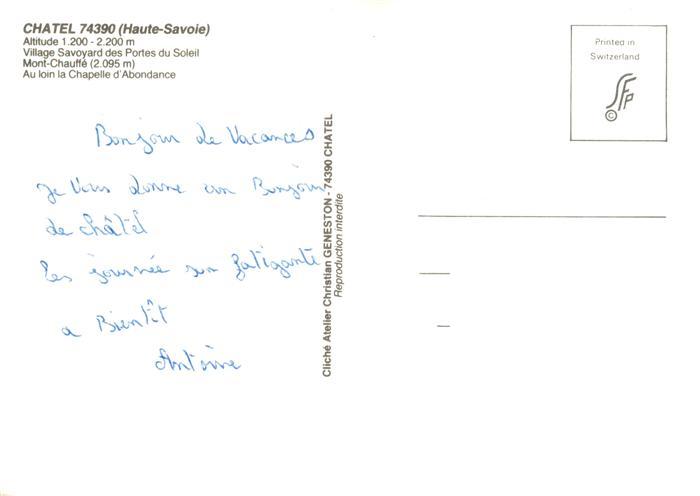 CHATEL 74390 (Haute-Savoie)
Altitude 1.200 - 2.200 m
Village Savoyard des Portes du Soleil
Mont-Chauffé (2.095 m)
Au loin la Chapelle d'Abondance
Bonjour de Vacances
Je Vous donne un Bonjour
de châtel
les journée son fatigante
a Bientît
Antoine
Cliché Atelier Christian GENESTON - 74390 CHATEL
Reproduction interdite
Printed in
Switzerland
SFP
©